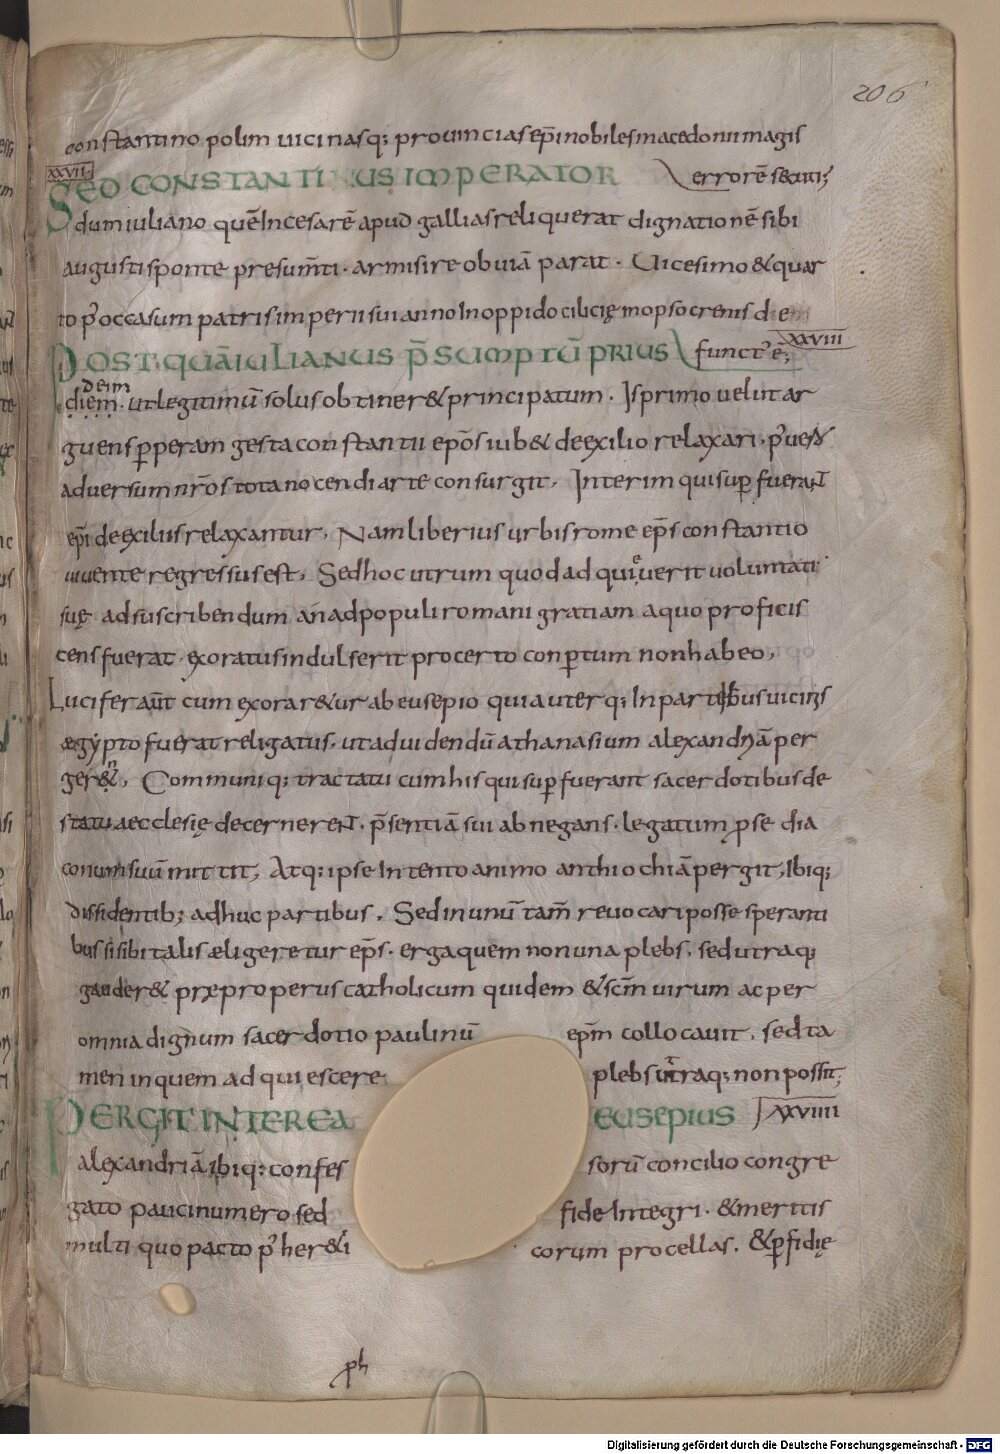 206
constantino polim uicinasq; prouinciasep̄inobilesmacedonii magis
XXVII.
SED CONSTANTINUS IMPERATOR errorē secuti;
dum iuliano quē incesarē apud gallias reliquerat dignationē sibi
augusti sponte presumti · armis ire obuiā parat · Uicesimo & quar
to p' occasum patris imperii sui anno In oppido cilicię mopsocrenis diem
XXVIII
POST QUĀ IULIANUS P̄SUMPTŪ PRIUS funct' ē;
deim
diem · ut legitimū solus obtiner& principatum · Is primo uelut ar
guens pperam gesta constantii ep̄os iub& de exilio relaxari · p' ues
aduersum nr̄os tota nocendi arte consurgit · Interim qui sup fuerant
ep̄i de exiliis relaxantur · Nam liberius urbis rome ep̄s constantio
uiuente regressus est · Sed hoc utrum quod adquieuerit uoluntati
suę ad suscribendum an ad populi romani gratiam a quo proficis
cens fuerat · exoratus indulserit pro certo conptum non habeo ·
Lucifer aūt cum exorar&ur ab eusepio quia uterq; In partibus uicinis
ægypto fuerat religatus · ut ad uidendū athanasium alexandriā per
ger&n · Communiq; tractatu cum his qui sup fuerant sacerdotibus de
statu aecclesię decernerent · p̄sentiā sui abnegans · legatum p se dia
conum suū mittit, Atq; ipse Intento animo anthiochiā pergit, Ibiq;
dissidentib; adhuc partibus · Sed in unū tam̄ reuocari posse speranti
bus si sibi talis æligeretur ep̄s · erga quem non una plebs · sed utraq;
gauder& præproperus catholicum quidem & scm̄ uirum ac per
omnia dignum sacerdotio paulinū ep̄m collocauit · sed ta
men in quem adquiescere plebs utraq; non possit;
PERGIT INTEREA EUSEPIUS XXVIIII
alexandriā ibiq; confes sorū concilio congre
gato pauci numero sed fide Integri · & meritis
multi quo pacto p' her&i corum procellas · & pfidię
ph
Digitalisierung gefördert durch die Deutsche Forschungsgemeinschaft - DFG